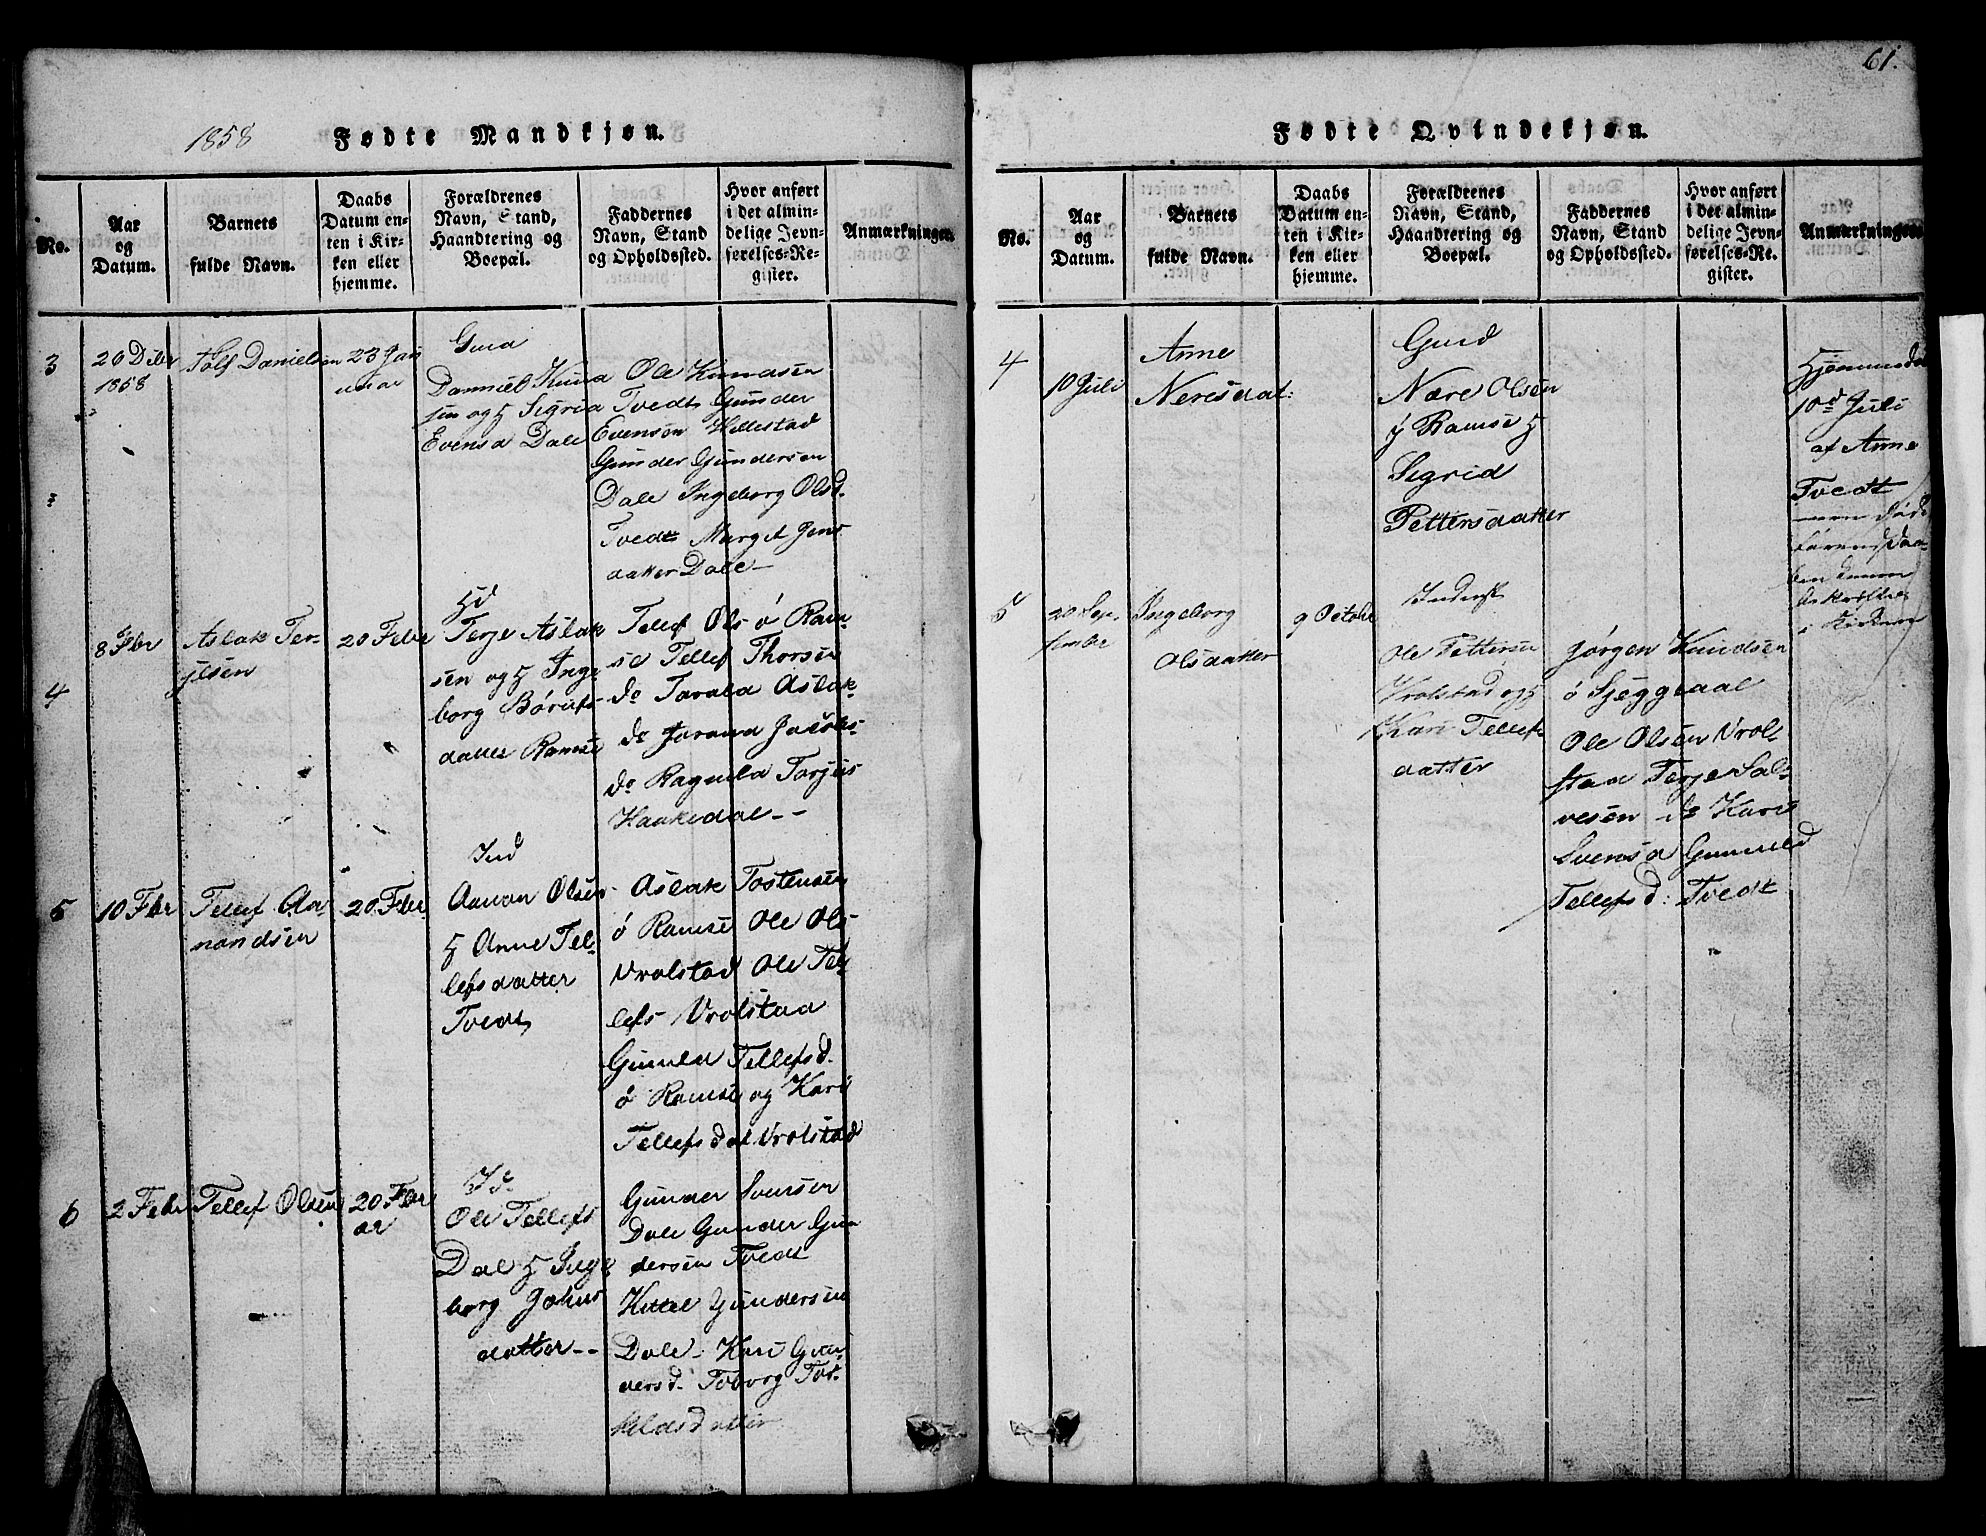 61.
1858
Fødte Mandkjøn.
No.
Aar og Datum.
Barnets fulde Navn.
Daabs Datum enten i Kirken eller hjemme.
Forældrenes Navn, Stand, Haandtering og Boepæl.
Faddernes Navn, Stand og Opholdssted.
Hvor anført i det almindelige Jevnførelses-Register.
Anmærkninger.
3
26 Dcbr
1858
Danielsen
23 Jan
uuar
Gmd
Danniel Knud
sen og H Sigrid
Evensd Dale
Ole Knudsen
Tvedt Gunder
Evensøn Hillestad
Gunder Gundersen
Dale Ingeborg Olsd.
Tvedt Margit Jens
datter Dale
4
8 Fbr
Aslak Ter-
jesen
20 Febr
Terje Aslak
sen og H Inge
borg
datter Ramse
Tellef Ols ø Ram-
se Tellef Thorsen
do Torald Aslak-
do Jorand Jacobs-
do Ragnild Torjus
Haukedal - -
5
10 Fbr
Tellef Aa
nondsen
20 Febr
Ind
Aanon Olsen
H Anne Tel-
lefsdatter
Tvedt
Aslak Tostensen
ø Ramse Ole Ols-
Vrolstad Ole Tel-
lefs- Vrolstad
Gunild Tellefsd.
ø Ramse og Kari
Tellefsdat Vrolstad
6
2 Febr
Tellef Olsen
20 Febr
ar
Id.
Ole Tellefs
Dal H Inge
borg Johns
datter - -
Gunder Svensen
Dale Gunder Gun
dersen Tvedt
Kittel Gundersen
Dale - Kari Gun-
dersd. Toborg Tor-
kildsdatter
Fødte Qvindekjøn.
No.
Aar og Datum.
Barnets fulde Navn.
Daabs Datum enten i Kirken eller hjemme.
Forældrenes Navn, Stand, Haandtering og Boepæl.
Faddernes Navn, Stand og Opholdssted.
Hvor anført i det almindelige Jevnførelses-Register.
Anmærkninger.
4
10 Juli
Anne
Neresdat:
Gmd
Nære Olsen
Ramse H
Sigrid
Pettersdatter
10d Juli
af Anne
Tvedt
5
20 Sep-
tember
Ingeborg
Olsdatter
9 Octobr
Inderst
Ole Pettersen
Vrolstad og H
Kari Tellefs
datter
Jørgen Knudsen
ø Sjeggedal
Ole Olsen Vrol-
stad Terje Sal-
vesen do Kari
Svensd Gunnild
Tellefsd: Tvedt